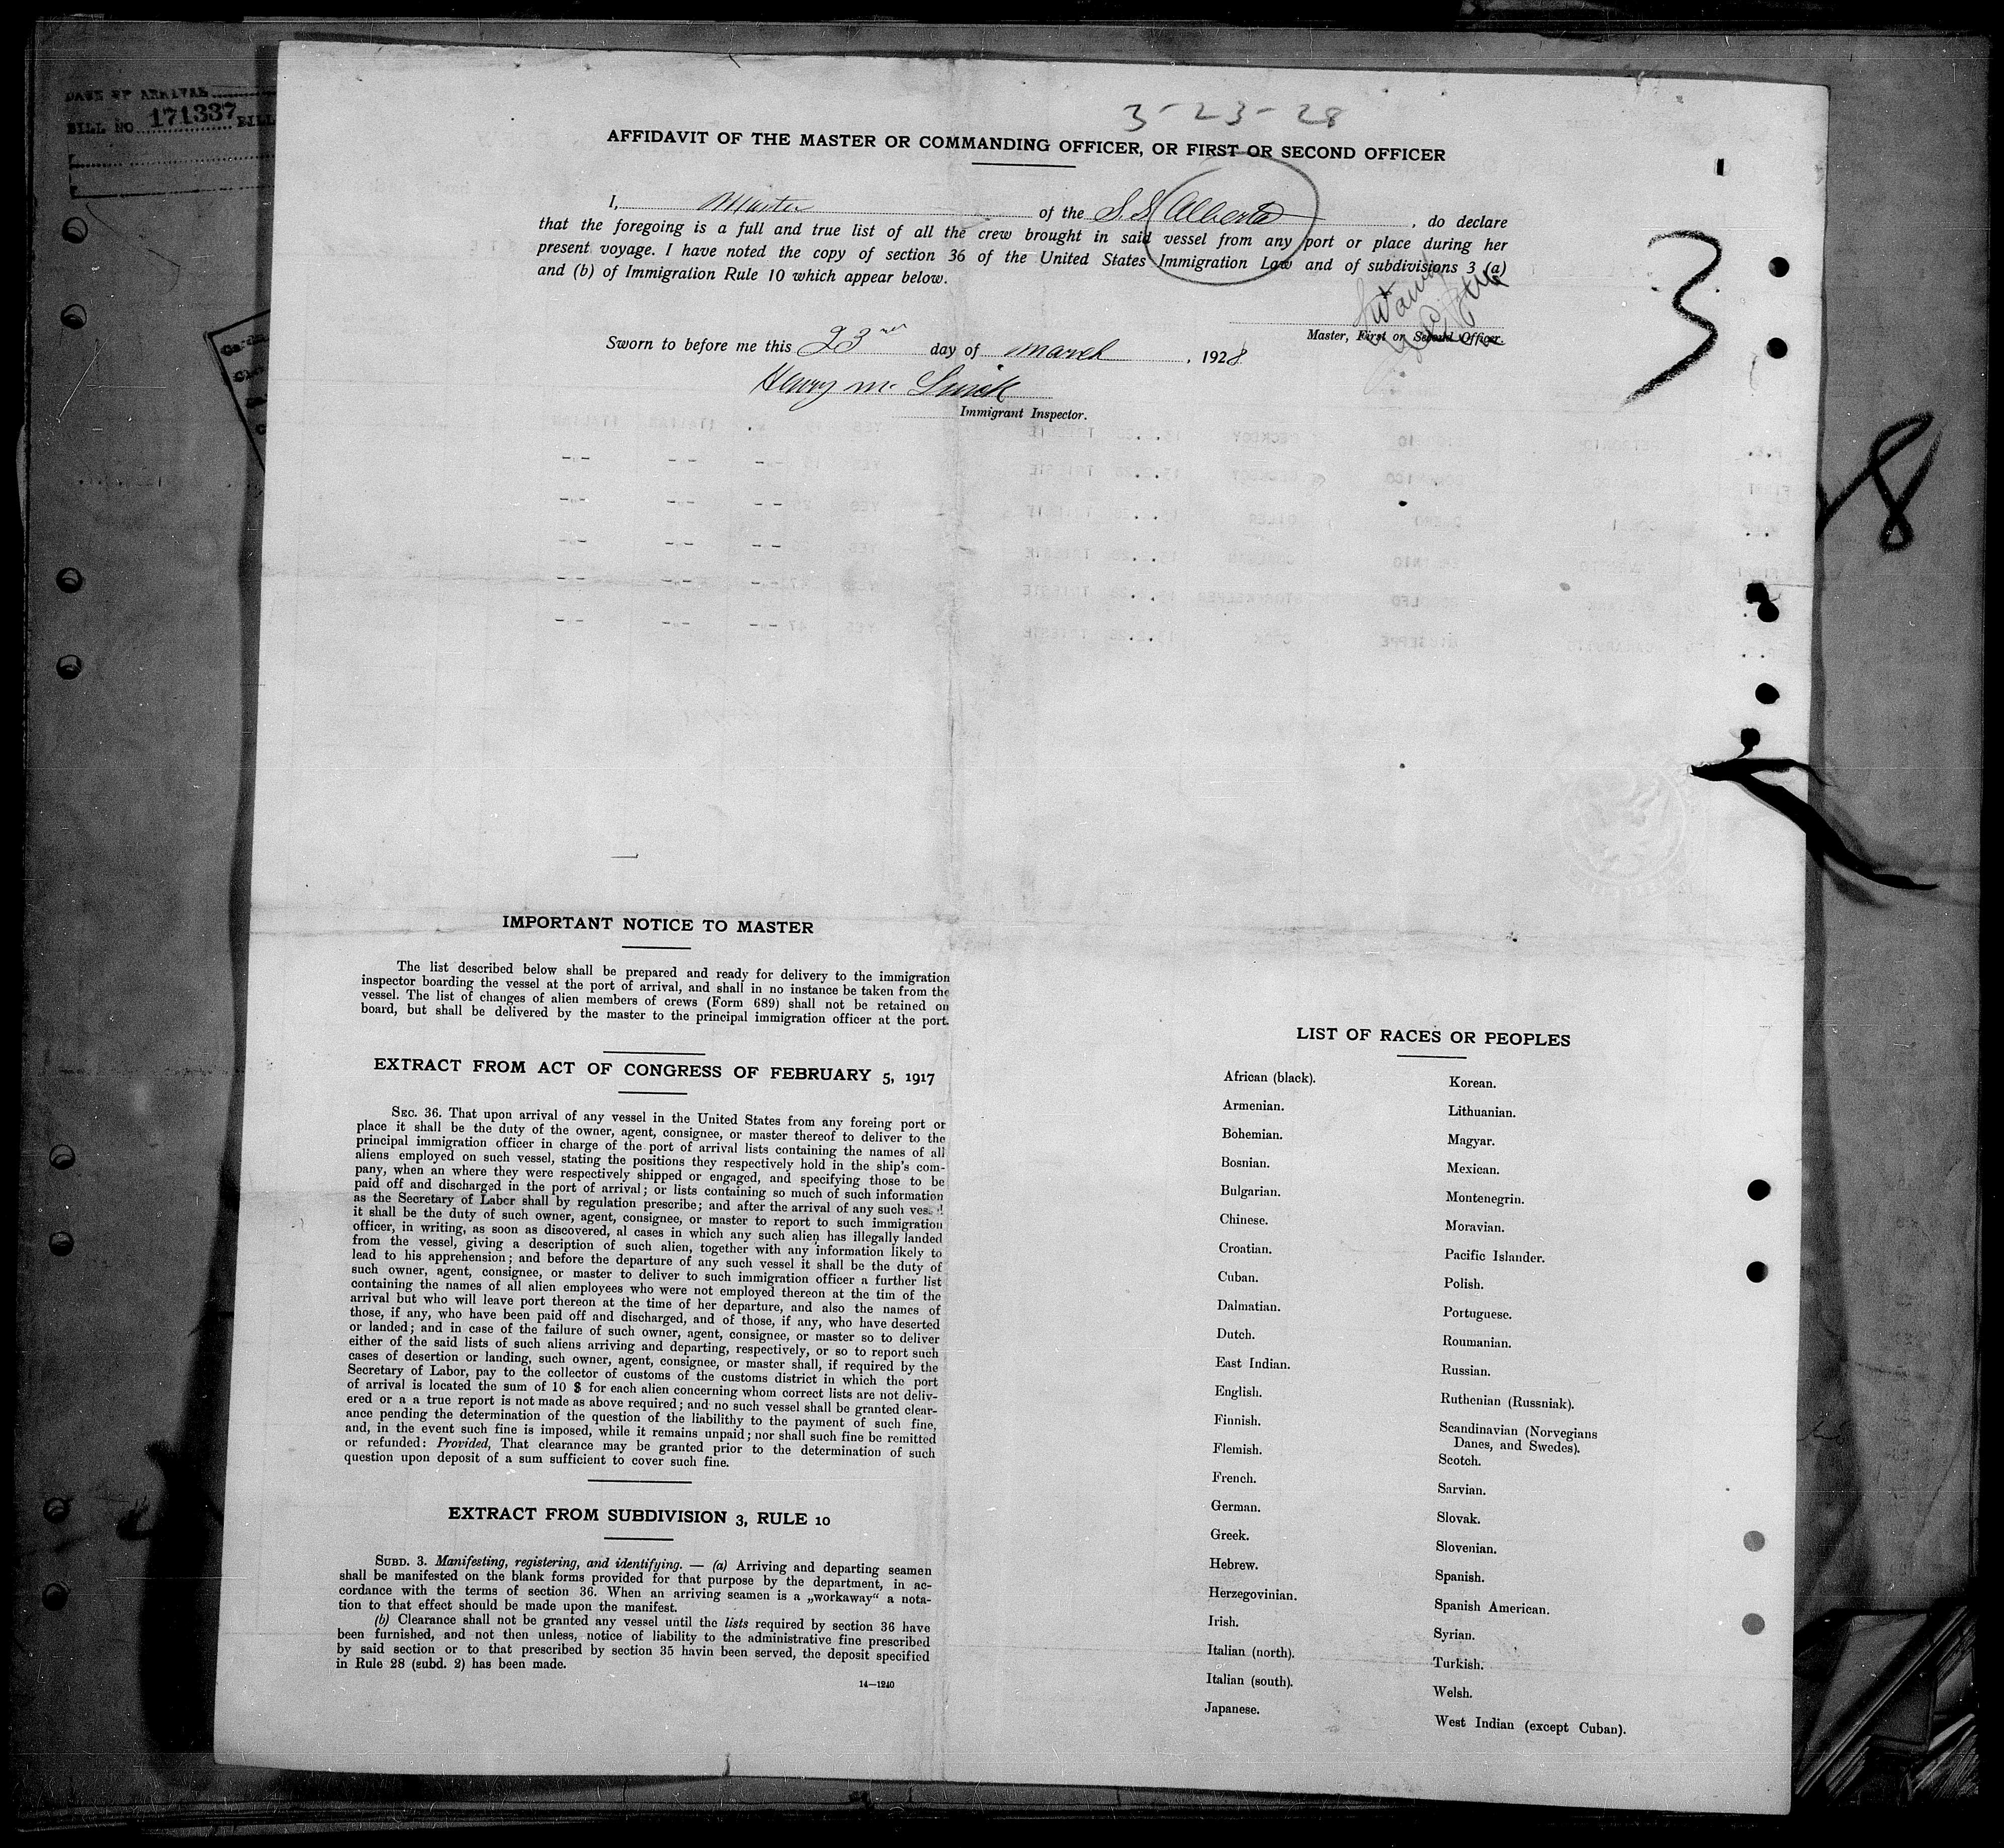 DATE OF ARRIVAL
BILL NO. 171337 BILL
3-23-28
AFFIDAVIT OF THE MASTER OR COMMANDING OFFICER, OR FIRST OR SECOND OFFICER
I, Master of the S.S. Alberta, do declare
that the foregoing is a full and true list of all the crew brought in said vessel from any port or place during her
present voyage. I have noted the copy of section 36 of the United States Immigration Law and of subdivisions 3 (a)
and (b) of Immigration Rule 10 which appear below.
3
Master, First or Second Officer.
Sworn to before me this 23rd day of March, 1928
Henry M.
Immigrant Inspector.
8
IMPORTANT NOTICE TO MASTER
The list described below shall be prepared and ready for delivery to the immigration
inspector boarding the vessel at the port of arrival, and shall in no instance be taken from the
vessel. The list of changes of alien members of crews (Form 689) shall not be retained on
board, but shall be delivered by the master to the principal immigration officer at the port.
EXTRACT FROM ACT OF CONGRESS OF FEBRUARY 5, 1917
SEC. 36. That upon arrival of any vessel in the United States from any foreing port or
place it shall be the duty of the owner, agent, consignee, or master thereof to deliver to the
principal immigration officer in charge of the port of arrival lists containing the names of all
aliens employed on such vessel, stating the positions they respectively hold in the ship's com-
pany, when an where they were respectively shipped or engaged, and specifying those to be
paid off and discharged in the port of arrival; or lists containing so much of such information
as the Secretary of Labor shall by regulation prescribe; and after the arrival of any such vessel
it shall be the duty of such owner, agent, consignee, or master to report to such immigration
officer, in writing, as soon as discovered, al cases in which any such alien has illegally landed
from the vessel, giving a description of such alien, together with any information likely to
lead to his apprehension; and before the departure of any such vessel it shall be the duty of
such owner, agent, consignee, or master to deliver to such immigration officer a further list
containing the names of all alien employees who were not employed thereon at the tim of the
arrival but who will leave port thereon at the time of her departure, and also the names of
those, if any, who have been paid off and discharged, and of those, if any, who have deserted
or landed; and in case of the failure of such owner, agent, consignee, or master so to deliver
either of the said lists of such aliens arriving and departing, respectively, or so to report such
cases of desertion or landing, such owner, agent, consignee, or master shall, if required by the
Secretary of Labor, pay to the collector of customs of the customs district in which the port
of arrival is located the sum of 10 $ for each alien concerning whom correct lists are not deliv-
ered or a a true report is not made as above required; and no such vessel shall be granted clear-
ance pending the determination of the question of the liabilithy to the payment of such fine,
and, in the event such fine is imposed, while it remains unpaid; nor shall such fine be remitted
or refunded: Provided, That clearance may be granted prior to the determination of such
question upon deposit of a sum sufficient to cover such fine.
EXTRACT FROM SUBDIVISION 3, RULE 10
SUBD. 3. Manifesting, registering, and identifying. — (a) Arriving and departing seamen
shall be manifested on the blank forms provided for that purpose by the department, in ac-
cordance with the terms of section 36. When an arriving seamen is a „workaway“ a nota-
tion to that effect should be made upon the manifest.
(b) Clearance shall not be granted any vessel until the lists required by section 36 have
been furnished, and not then unless, notice of liability to the administrative fine prescribed
by said section or to that prescribed by section 35 havin been served, the deposit specified
in Rule 28 (subd. 2) has been made.
14—1240
LIST OF RACES OR PEOPLES
African (black).
Armenian.
Bohemian.
Bosnian.
Bulgarian.
Chinese.
Croatian.
Cuban.
Dalmatian.
Dutch.
East Indian.
English.
Finnish.
Flemish.
French.
German.
Greek.
Hebrew.
Herzegovinian.
Irish.
Italian (north).
Italian (south).
Japanese.
Korean.
Lithuanian.
Magyar.
Mexican.
Montenegrin.
Moravian.
Pacific Islander.
Polish.
Portuguese.
Roumanian.
Russian.
Ruthenian (Russniak).
Scandinavian (Norvegians
Danes, and Swedes).
Scotch.
Sarvian.
Slovak.
Slovenian.
Spanish.
Spanish American.
Syrian.
Turkish.
Welsh.
West Indian (except Cuban).